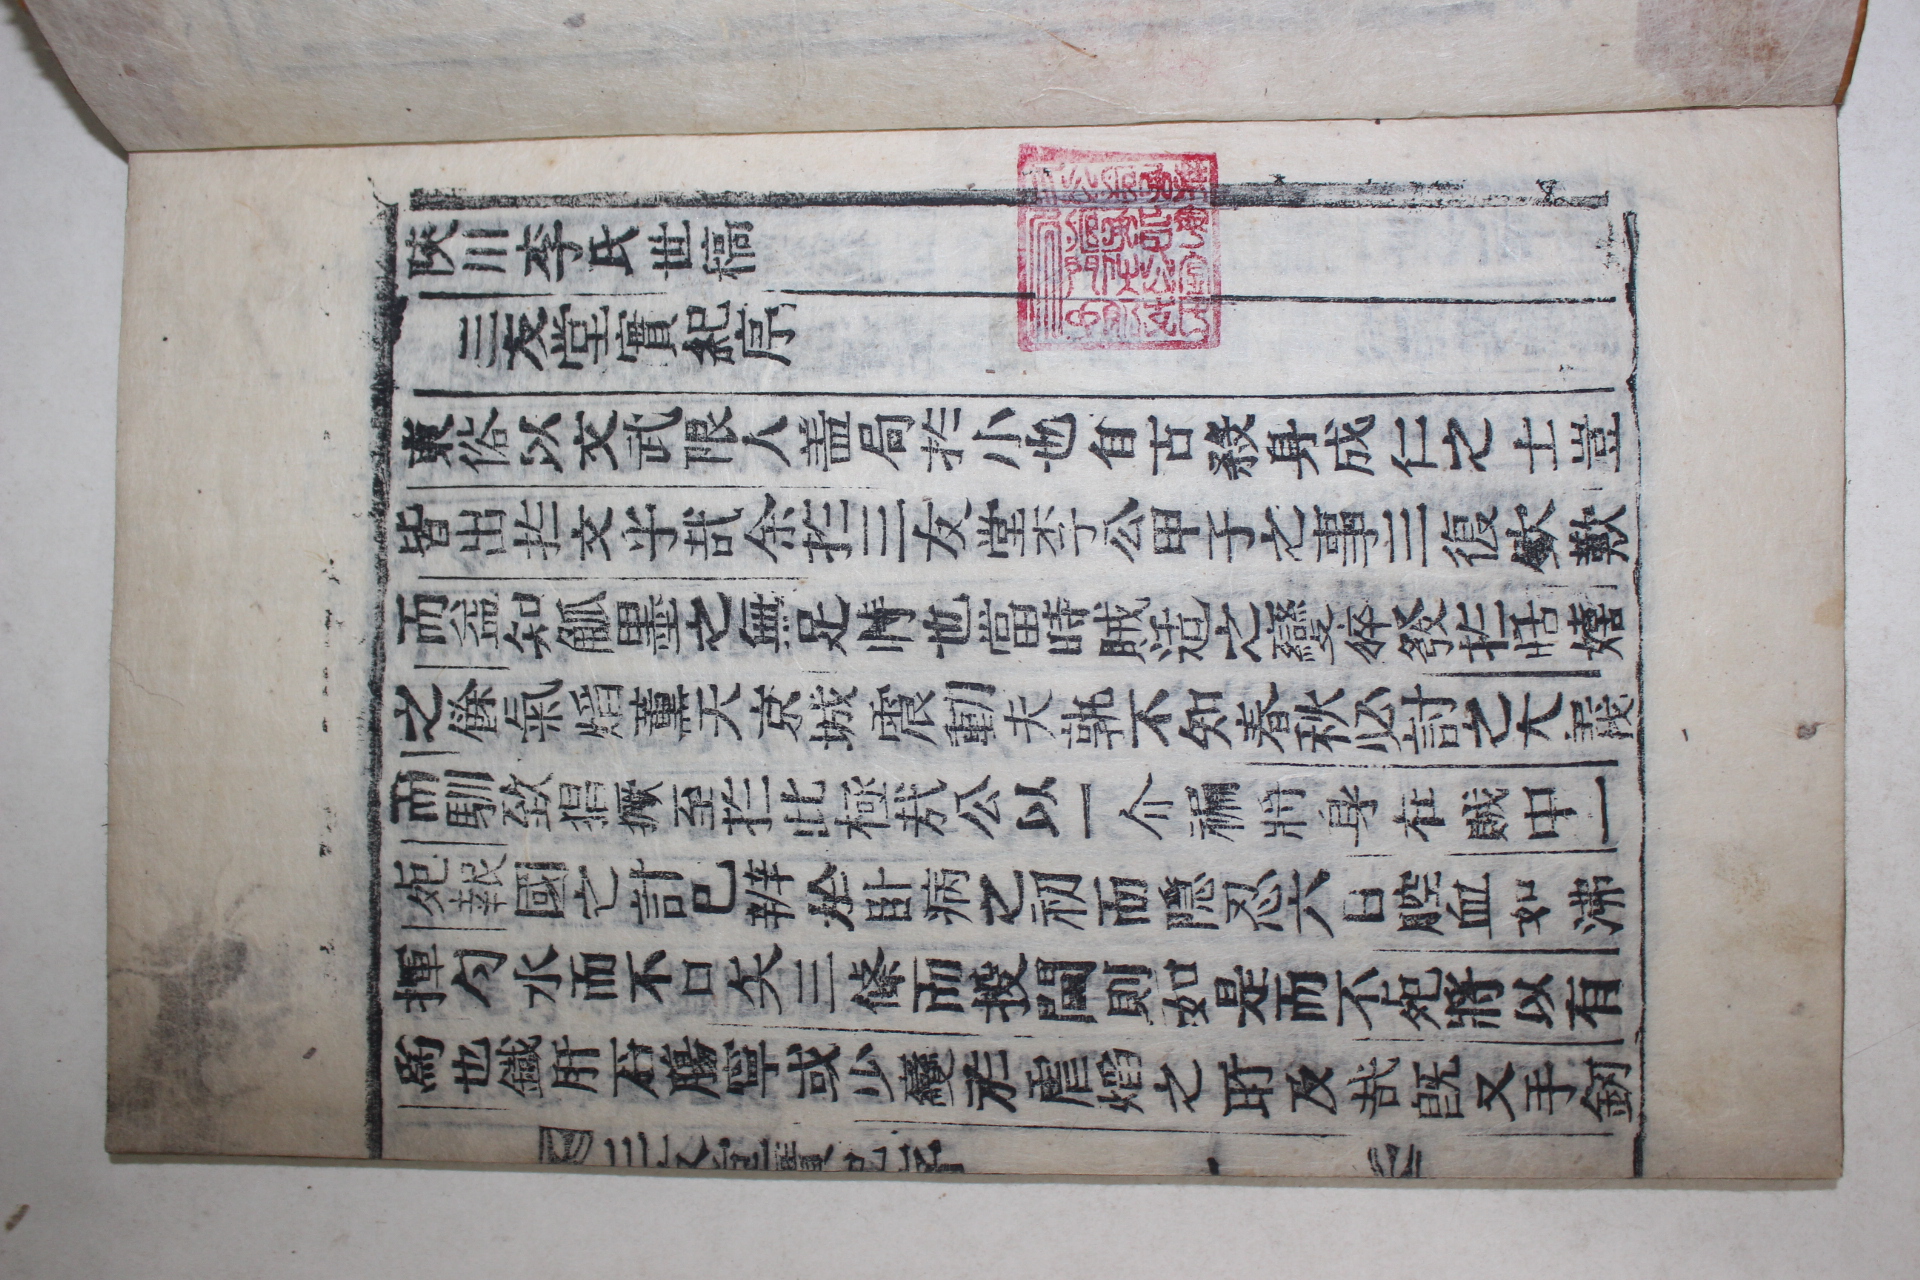 陜川李氏世稿
三友堂實紀序
東俗以文武限人盖局於小也自古殺身成仁之士豈
皆出於文乎哉余於三友堂李公甲子之事三復欽歎
而益知觚墨之無足恃也當時賊适之變猝發於恬嬉
之餘氣焰薰天京城震動夫孰不知春秋必討之大義
而馴致猖獗至於此極哉公以一介褊將身在賊中一
死報國之計已辦於臥病之初而隱忍六日腔血如沸
揮勺水而不口矢三條而投閫則如是而不死將以有
為也鐵肝石膓寧或少變於虐焰之所及哉旣又手劒
三友堂實紀序